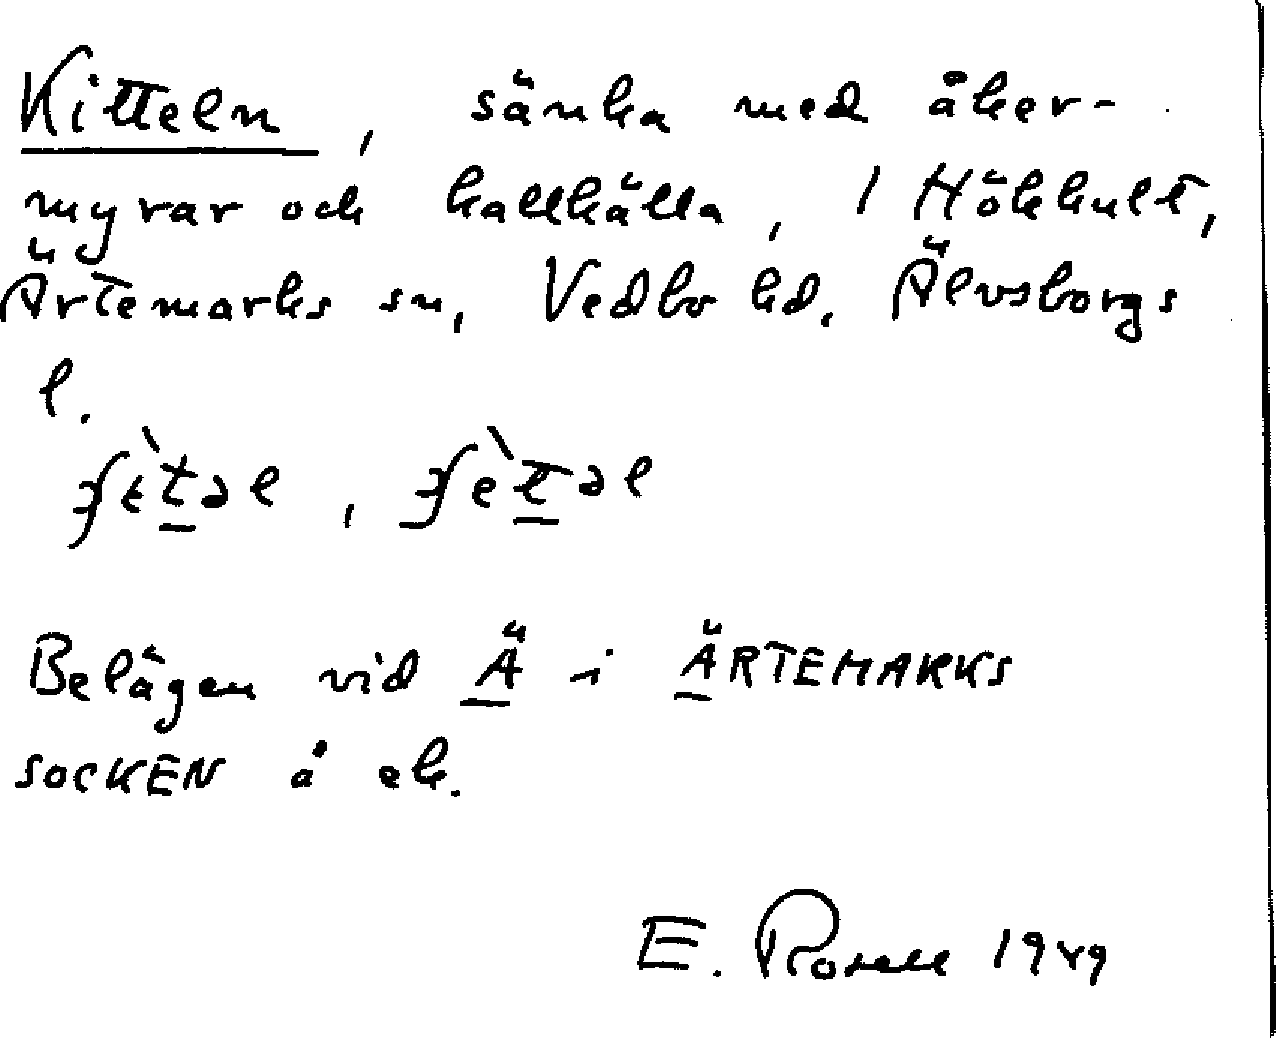 Kitteln, sänka med åker-
myrar och kallkälla, 1 Hökhult,
Ärtemarks sn, Vedbo hd. Älvsborgs
l.
Belägen vid Ä i ÄRTEMARKS
SOCKEN å ek.
E. Rosell 1949